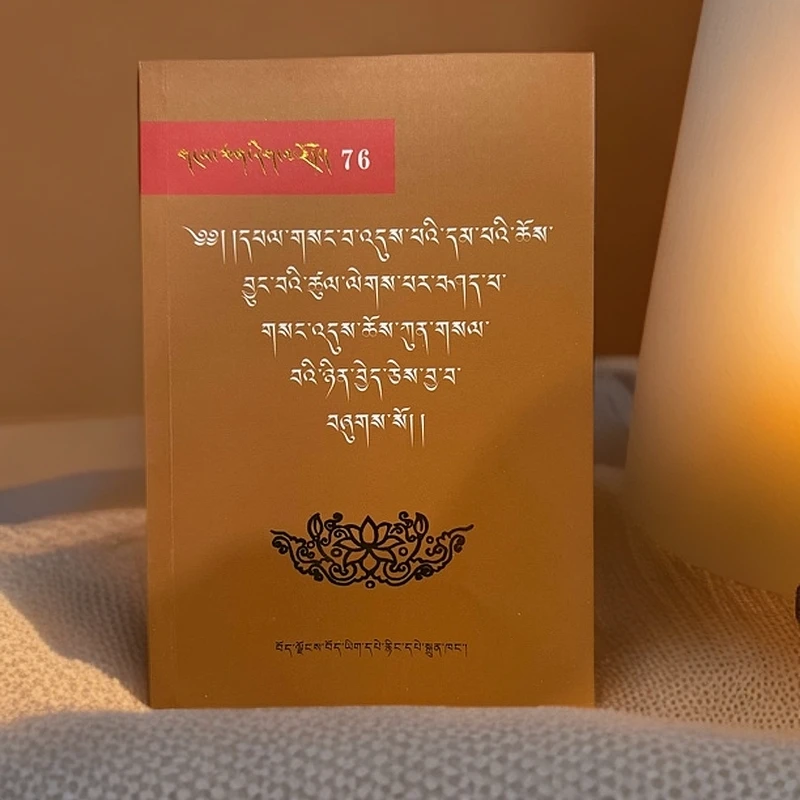 གངས་ཅན་རིག་མཛོད 76
༄༅། །དཔལ་གསང་བ་འདུས་པའི་དམ་པའི་ཆོས་
བྱུང་བའི་ཚུལ་ལེགས་པར་བཤད་པ་
གསང་འདུས་ཆོས་ཀུན་གསལ་
བའི་ཉིན་བྱེད་ཅེས་བྱ་བ་
བཞུགས་སོ། །
བོད་ལྗོངས་བོད་ཡིག་དཔེ་རྙིང་དཔེ་སྐྲུན་ཁང་།